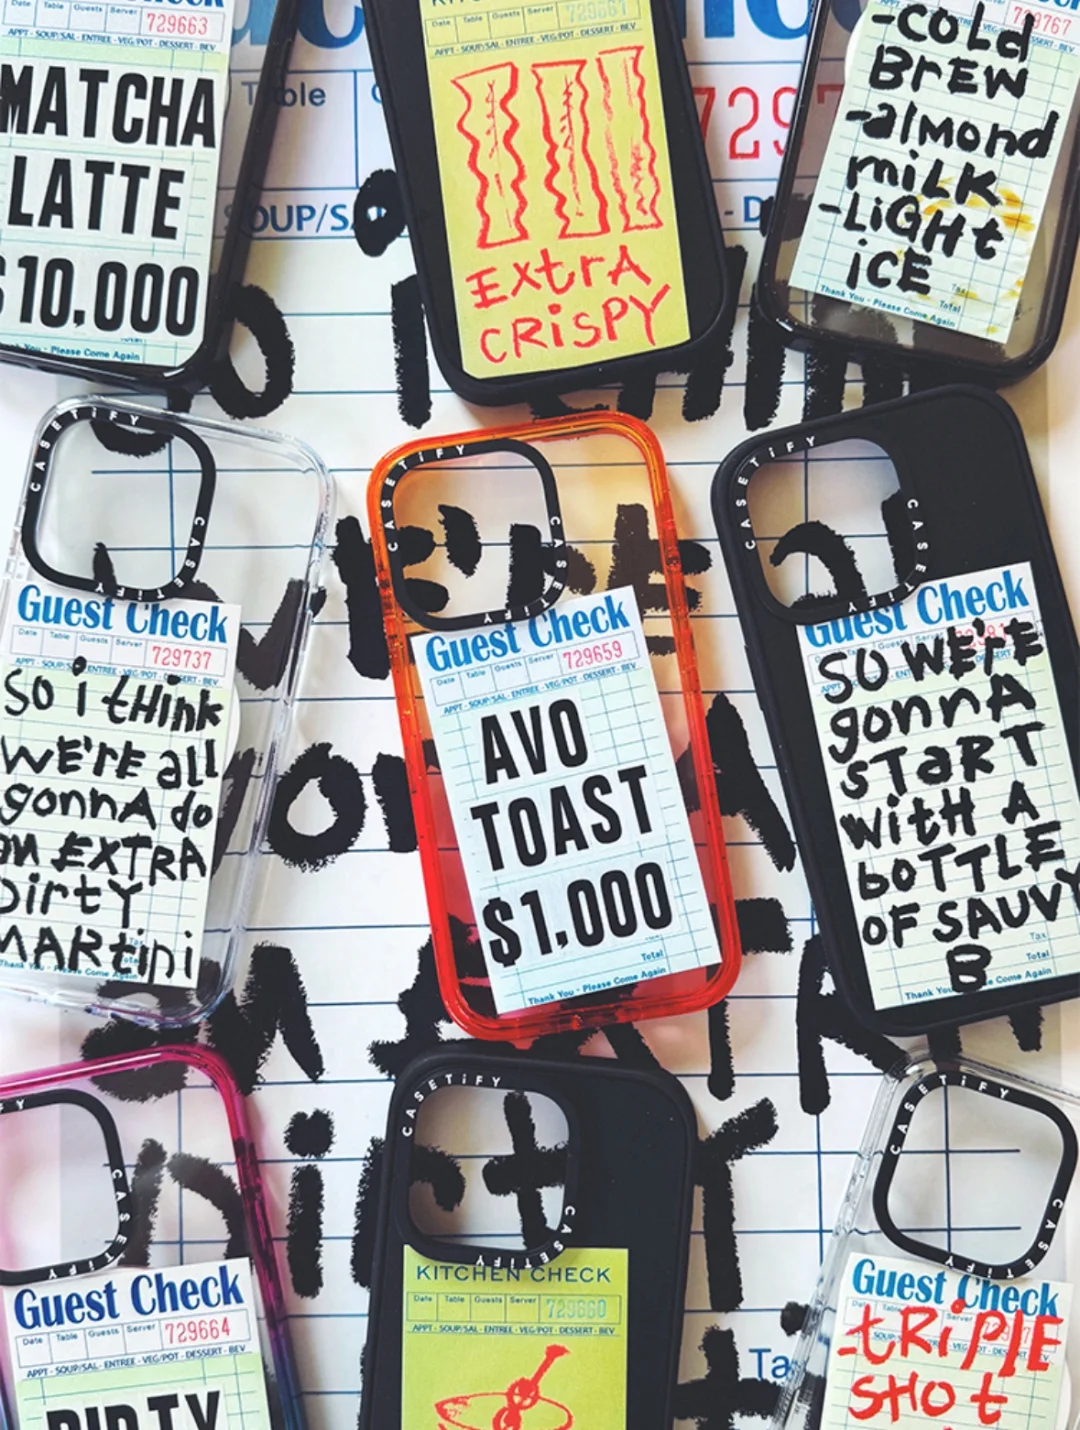 Guest Check
Date Table Guests Server
729663
APPT - SOUP/SAL - ENTREE - VEG/POT - DESSERT - BEV
MATCHA
LATTE
$10,000
Thank You - Please Come Again
Date Table Guests Server
729661
APPT - SOUP/SAL - ENTREE - VEG/POT - DESSERT - BEV
EXtrA
CRiSPY
729767
-COLd
BrEW
-almond
miLK
-LiGHt
iCE
Tax
Total
Thank You - Please Come Again
Table
SOUP/SAL
729
CASETiFY
CASETiFY
Guest Check
Date Table Guests Server
729737
APPT - SOUP/SAL - ENTREE - VEG/POT - DESSERT - BEV
SO i tHink
WE'RE all
gonnA do
an EXTRA
Dirty
MARtini
CASETiFY
CASETiFY
Guest Check
Date Table Guests Server
729659
APPT - SOUP/SAL - ENTREE - VEG/POT - DESSERT - BEV
AVO
TOAST
$1,000
Total
Thank You - Please Come Again
CASETiFY
CASETiFY
Guest Check
SO WE'rE
gonnA
sTaRT
witH A
boTTLE
OF SAUVY
B
Tax
Total
Thank You - Please Come Again
CASETiFY
Guest Check
Date Table Guests Server
729664
APPT - SOUP/SAL - ENTREE - VEG/POT - DESSERT - BEV
DIRTY
CASETiFY
CASETiFY
KITCHEN CHECK
Date Table Guests Server
729660
APPT - SOUP/SAL - ENTREE - VEG/POT - DESSERT - BEV
CASETiFY
CASETiFY
Guest Check
-tRiPlE
SHOt